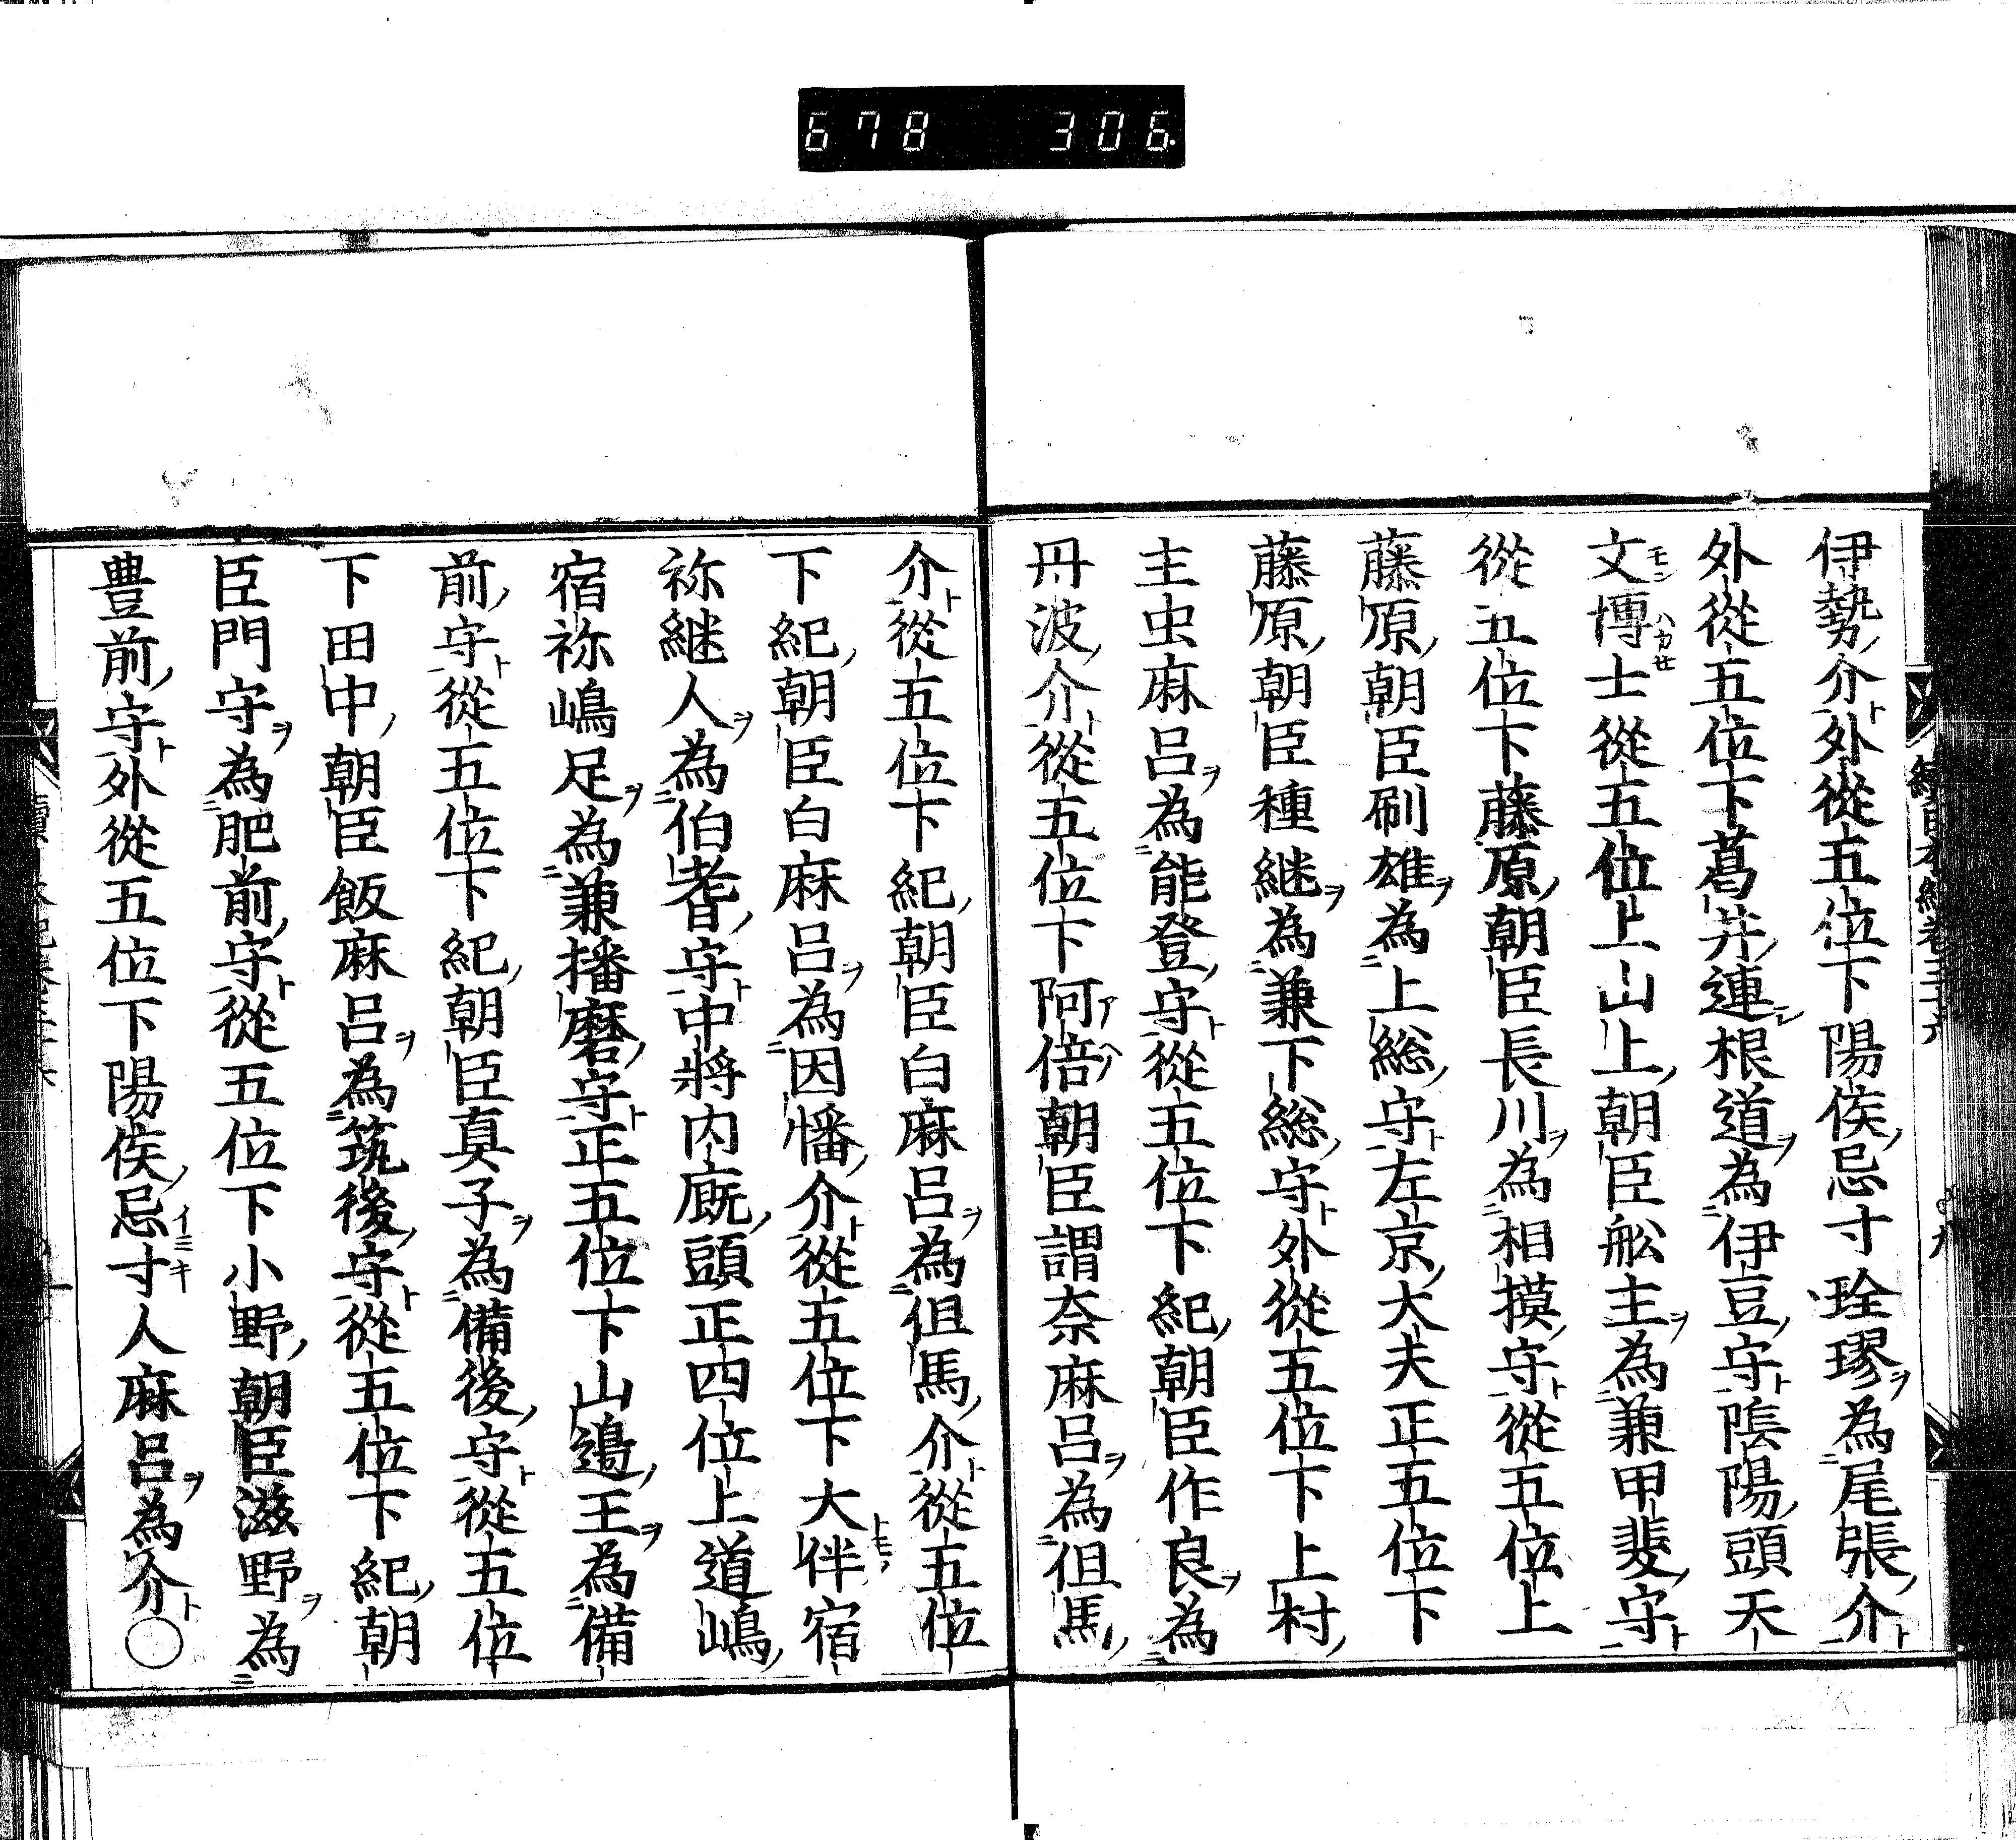 678 306
伊勢介外從五位下陽侯忌寸玲璆為尾張介
外從五位下葛井連根道為伊豆守陰陽頭天
文博士從五位上山上朝臣舩主為兼甲斐守
從五位下藤原朝臣長川為相摸守從五位上
藤原朝臣刷雄為上総守左京大夫正五位下
藤原朝臣種継為兼下総守外從五位下上村
主虫麻呂為能登守從五位下紀朝臣作良為
丹波介從五位下阿倍朝臣謂奈麻呂為但馬
介從五位下紀朝臣白麻呂為但馬介從五位
下紀朝臣白麻呂為因幡介從五位下大伴宿
祢継人為伯耆守中將内廐頭正四位上道嶋
宿祢嶋足為兼播磨守正五位下山邊王為備
前守從五位下紀朝臣真子為備後守從五位
下田中朝臣飯麻呂為筑後守從五位下紀朝
臣門守為肥前守從五位下小野朝臣滋野為
豊前守外從五位下陽侯忌寸人麻呂為介○